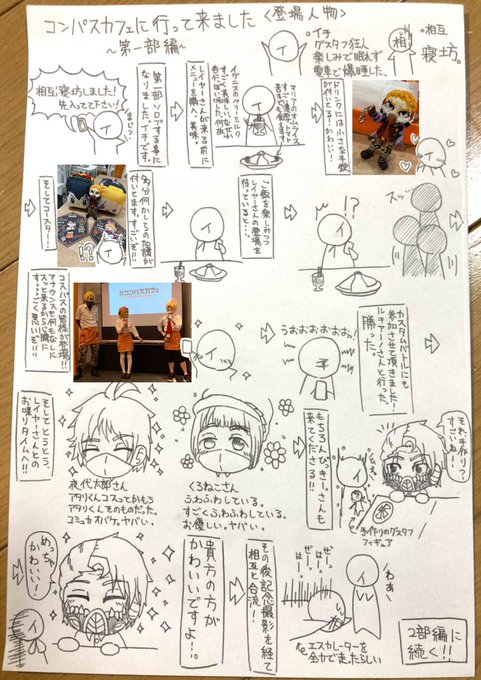 コンパスカフェに行って来ました
〜第一部編〜
〈登場人物〉
イチ
グスタフ狂人
楽しみで眠れず
電車で爆睡した。
相互
寝坊。
相互寝坊しました!
先入ってて下さい!
まじっ?
第一部ソロプする事に
なりました。イチです。
レイヤーさんが来る前に
メニューを購入、美味。
マリアのオムライス
ドリンクに小さな手錠
が付いてる…かわいい!
そしてコースター…
多分何かしらの加護が
付いてます。すごいぞ!!
ご飯を楽しみつつ
レイヤーさんの登場を
待っていると…
!?
スッ…
コスパスの皆様が登場!!!
アナウンスも何もなしに
スッと来るから心臓に
すっっっごく悪いぞ!!!
#コンパスカフェ
うぉおおおおおぉぉ
カスタムバトルにも
参加させて頂きました!
ルチアーノさんと行った。
勝った。
そしてとうとう、
レイヤーさんとの
お喋りタイムへ!!!
夜代太郎さん
アタリくんコスってかもう
アタリくんそのものだった。
コミュカオバケ。ヤバい。
くろねこさん
ふわふわしている。
すごくふわふわしている。
お優しい。ヤバい。
もちろんびっきぃさんも
来てくださる!!
それ、手作り?
すごいね!
え、え、
手作りのグスタフ
フィギュア
めっちゃ
かわいい!
貴方の方が
かわいいですよ…
その後記念撮影を経て
相互と合流…!
ぜーっ
はーっ
ぜーっ
はーっ
わぁ
エスカレーターを
全力で走ったらしい
2部編に
続く!!